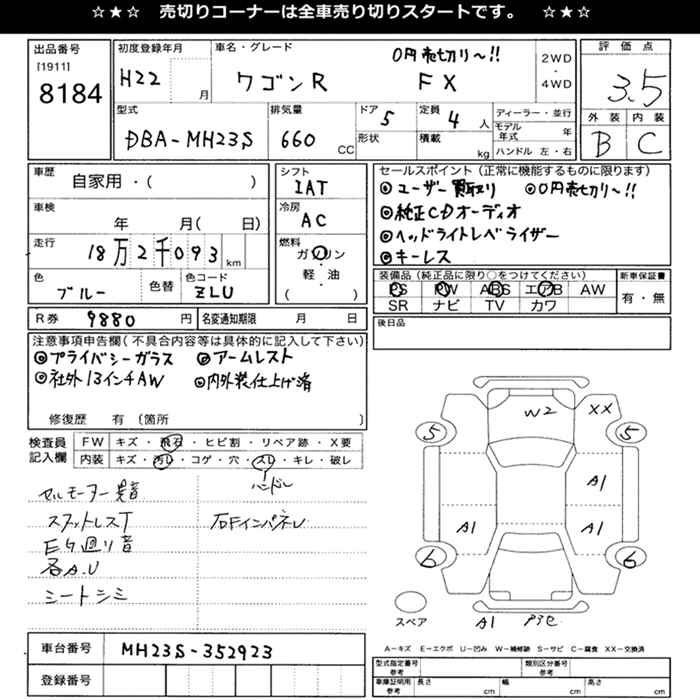 ☆★☆ 売切りコーナーは全車売り切りスタートです。 ☆★☆
出品番号
[1911]
8184
初度登録年月
H22 月
車名・グレード
0円売切り〜!!
ワゴンR FX
2WD
・
4WD
評価点
3.5
外装 内装
B C
型式
DBA-MH23S
排気量
660 CC
ドア 5
形状
定員 4 人
積載 kg
ディーラー・並行
モデル年式 年
ハンドル 左・右
車歴
自家用・( )
車検
年 月( 日)
走行
18万2千093 km
色
ブルー
色替
色コード
ZLU
シフト
IAT
冷房
AC
燃料
ガソリン
・
軽・油
( )
セールスポイント(正常に機能するものに限ります)
◎ユーザー買取り ◎0円売切り〜!!
◎純正CDオーディオ
◎ヘッドライトレベライザー
◎キーレス
装備品(純正品に限り○をつけてください)
PS PW ABS エアB AW
SR ナビ TV カワ
新車保証書
有・無
R券 9880 円
名変通知期限 月 日
後日品
注意事項申告欄(不具合内容等は具体的に記入して下さい)
◎プライバシーガラス ◎アームレスト
◎社外13インチAW ◎内外装仕上げ済
修復歴 有(箇所 )
検査員記入欄
FW キズ・飛石・ヒビ割・リペア跡・X要
内装 キズ・汚レ・コゲ・穴・スレ・キレ・破レ
ハンドル
セルモーター異音
スフットレスT
右Fインパネレ
Eg回り音
各A.U
シートシミ
W2
XX
5
5
A1
A1
A1
6
6
スペア
A1
A-キズ E-エクボ U-凹み W-補修跡 S-サビ C-腐食 XX-交換済
車台番号 MH23S-352923
登録番号
型式指定番号
参考
類別区分番号
参考
車庫証明用
参考
長さ cm 幅 cm 高さ cm